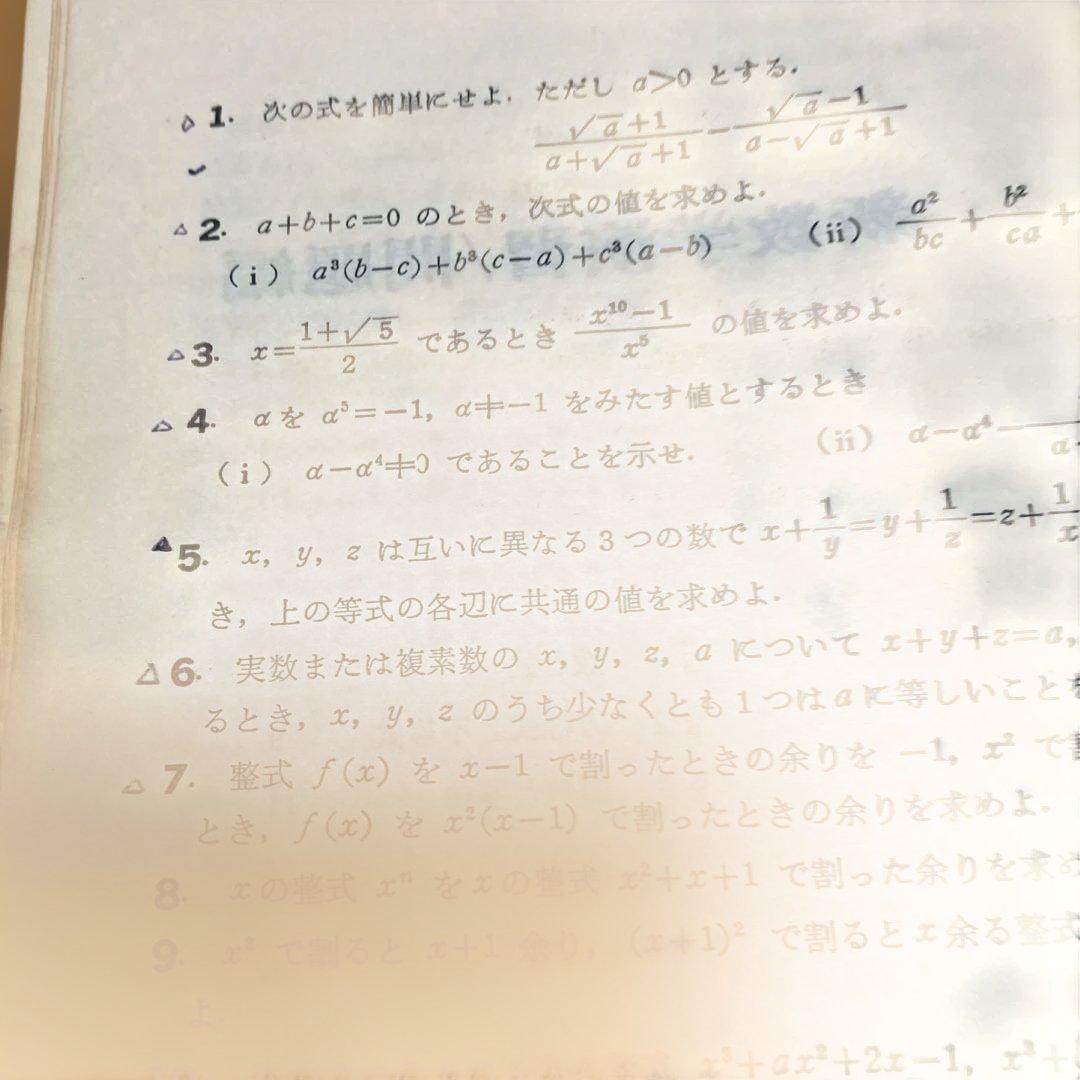 1. 次の式を簡単にせよ. ただし a>0 とする.
(√a+1)/(a+√a+1) − (√a−1)/(a−√a+1)
2. a+b+c=0 のとき, 次式の値を求めよ.
(i) a³(b−c)+b³(c−a)+c³(a−b) (ii) a²/bc + b²/ca +
3. x=(1+√5)/2 であるとき (x¹⁰−1)/x⁵ の値を求めよ.
4. αを α⁵=−1, α≠−1 をみたす値とするとき
(i) α−α⁴≠0 であることを示せ. (ii) α−α⁴−
5. x, y, z は互いに異なる3つの数で x+1/y=y+1/z=z+1/x
き, 上の等式の各辺に共通の値を求めよ.
6. 実数または複素数の x, y, z, a について x+y+z=a,
るとき, x, y, z のうち少なくとも1つはaに等しいこと
7. 整式 f(x) を x−1 で割ったときの余りを −1, x² で
とき, f(x) を x²(x−1) で割ったときの余りを求めよ.
8. xの整式 xⁿ をxの整式 x²+x+1 で割った余りを求
9. x² で割ると x+1 余り, (x+1)² で割るとx余る整式
よ.
x³+ax²+2x−1, x³+